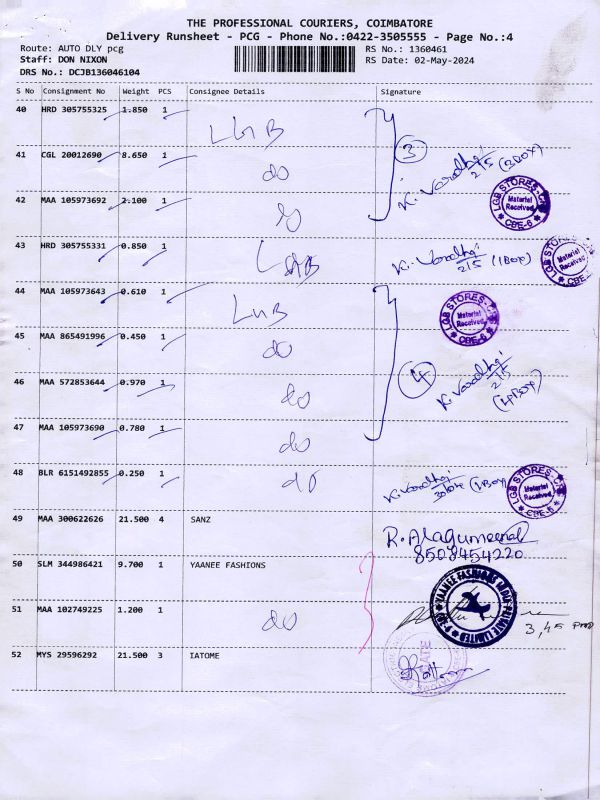 THE PROFESSIONAL COURIERS, COIMBATORE
Delivery Runsheet - PCG - Phone No.:0422-3505555 - Page No.:4
Route: AUTO DLY pcg RS No.: 1360461
Staff: DON NIXON RS Date: 02-May-2024
DRS No.: DCJB136046104
S No Consignment No Weight PCS Consignee Details Signature
40 HRD 305755325 1.850 1 LGB
41 CGL 20012690 8.650 1 do
3
K. Varadhaj
2/5 (3BOX)
42 MAA 105973692 2.100 1 do
LGB STORES
Material Received
CBE-6
43 HRD 305755331 0.850 1 LGB
K. Varadhaj
2/5 (1BOX)
LGB STORES
Material Received
CBE-6
44 MAA 105973643 0.610 1 LGB
LGB STORES
Material Received
CBE-6
45 MAA 865491996 0.450 1 do
46 MAA 572853644 0.970 1 do
4
K. Varadhaj
2/5
(4BOX)
47 MAA 105973690 0.780 1 do
48 BLR 6151492855 0.250 1 do
K. Varadhaj
(1BOX)
LGB STORES
Material Received
CBE-6
49 MAA 300622626 21.500 4 SANZ
R. Alagumeenal
8508454220
50 SLM 344986421 9.700 1 YAANEE FASHIONS
YAANEE FASHIONS PRIVATE LIMITED
51 MAA 102749225 1.200 1 do
3,45 PM
52 MYS 29596292 21.500 3 IATOME